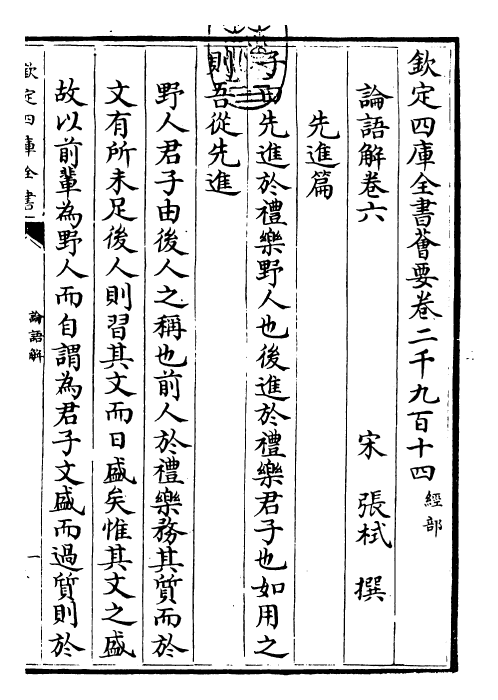 欽定四庫全書薈要卷二千九百十四 經部
論語解卷六
宋 張栻 撰
先進篇
子曰先進於禮樂野人也後進於禮樂君子也如用之
則吾從先進
野人君子由後人之稱也前人於禮樂務其質而於
文有所未足後人則習其文而日盛矣惟其文之盛
故以前輩為野人而自謂為君子文盛而過質則於
欽定四庫全書
論語解
一